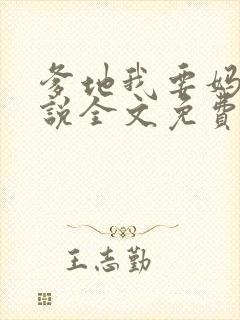 爹地我要妈
说全文免费
王志勤